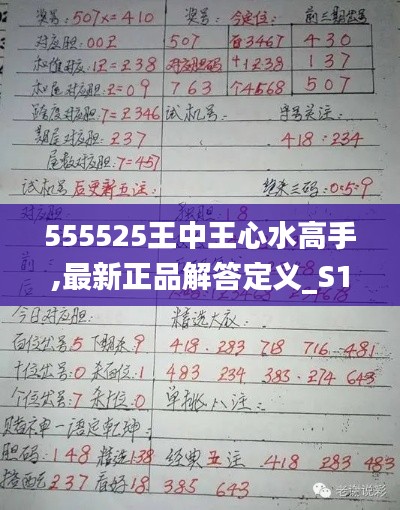 奖号:507x=410 奖号: 今定位: 前三期奖号
对应胆:00又 507 百3467 430
和值对应:又=238 对应胆码 十1238 137
和尾对应胆:2=09 763 个4568 507
跨度对应胆:7=2346 试机号: 字号关注:
期尾对应胆:237 418:234
尾数对应胆:7=457
试机号后更新五注: 绝杀三码:0:5:9
胆:18
555525王中王心水高手
,最新正品解答定义_S1
今日对应胆: 精选大底:
百位奖号5下期杀9 418.283 718 716.481
十位号:0杀百位:1 483 234 383.274 643
个位号:7杀十位:0 单挑八注:
赌神一语定乾坤:
胆码:148 精选138 经典五注.418 283 483
搭配237 看好18 385 643
老彩说彩